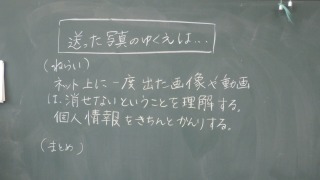 送った写真のゆくえは...
(ねらい)
ネット上に一度出た画像や動画
は、消せないということを理解する。
個人情報をきちんとかんりする。
(まとめ)